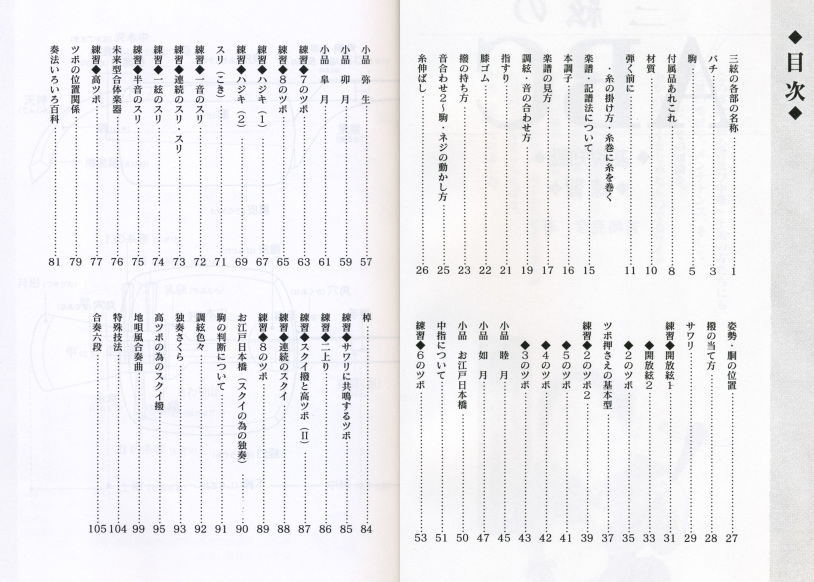 ◆目次◆
三絃の各部の名称 1
バチ 3
駒 5
付属品あれこれ 8
材質 10
弾く前に 11
・糸の掛け方・糸巻に糸を巻く
楽譜・記譜法について 15
本調子 16
楽譜の見方 17
調絃・音の合わせ方 19
指すり 21
膝ゴム 22
撥の持ち方 23
音合わせ2〜駒・ネジの動かし方 25
糸伸ばし 26
姿勢・胴の位置 27
撥の当て方 28
サワリ 29
練習◆開放絃1 31
◆開放絃2 33
◆2のツボ 35
ツボ押さえの基本型 37
練習◆2のツボ2 39
◆5のツボ 41
◆4のツボ 42
◆3のツボ 43
小品 睦 月 45
小品 如 月 47
小品 お江戸日本橋 50
中指について 51
練習◆6のツボ 53
小品 弥 生 57
小品 卯 月 59
小品 皐 月 61
練習◆7のツボ 63
練習◆8のツボ 65
練習◆ハジキ(1) 67
練習◆ハジキ(2) 69
スリ(こき) 71
練習◆一音のスリ 72
練習◆連続のスリ・スリ 73
練習◆一絃のスリ 74
練習◆半音のスリ 75
未来型合体楽器 76
練習◆高ツボ 77
ツボの位置関係 79
奏法いろいろ百科 81
棹 84
練習◆サワリに共鳴するツボ 85
練習◆二上り 86
練習◆スクイ撥と高ツボ(II) 87
練習◆連続のスクイ 88
練習◆8のツボ 89
お江戸日本橋(スクイの為の独奏) 90
駒の判断について 91
調絃色々 92
独奏さくら 93
高ツボの為のスクイ撥 95
地唄風合奏曲 99
特殊技法 104
合奏六段 105